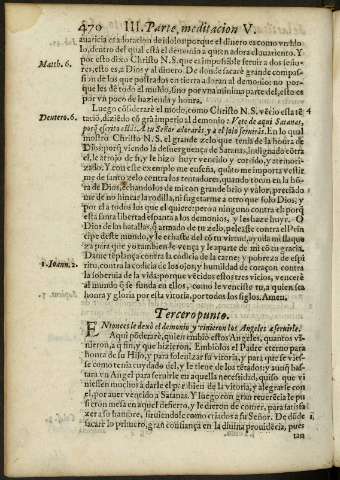 470 III. Parte, meditacion V.
auaricia es adoracion de idolos: porque el dinero es como vn Ido
lo, dentro del qual està el demonio a quien adora el auariento. Y
por esto dixo Christo N. S. que es impossible seruir a dos seño-
Matth. 6.
res, esto es, à Dios y al dinero. De donde sacarè grande compas-
sion de los que postrados en tierra adoran al demonio: no por-
que les dè todo el mũdo, sino por vna minima parte del, esto es
por vn poco de hazienda y honra.
Luego cõsiderarè el modo, como Christo N. S. vēcio esta tē 4
Deutero. 6.
tació, diziēdo cõ grã imperio al demonio: Vete de aqui Satanas,
porq̃ escrito està: A tu Señor adoraràs, y a el solo seruiràs. En lo qual
mostro Christo N. S. el grande zelo que tenia de la honra de
Dios: porq̃ viendo la desuerguença de Satanas, indignado cõtra
el, le arrojò de si, y le hizo huyr vencido y corrido, y atemori-
zado. Y con este exemplo me enseña, quãto me importa vestir
me de santo zelo contra los tentadores, quando tocan en la hõra
de Dios, echandolos de mi con grande brio y valor, preciãdo
me de no hincar la rodilla, ni sugetarme a otro que solo Dios; y
por el a todos los que el quiere: pero a ninguno contra el: porq̃
esta santa libertad espanta a los demonios, y les haze huyr. O
Dios de las batallas, q̃ armado de tu zelo, peleaste contra el Prin
cipe deste mundo, y le echaste del cõ tu virtud, ayuda mi flaque
za para que yo tambien le vença y le aparte de mi cõ tu gracia.
Dame tēplança contra la codicia de la carne; y pobreza de espi
1. Ioann. 2.
ritu, contra la codicia de los ojos; y humildad de coraçon contra
la soberuia de la vida: porque vēcidas estos tres vicios, vencerè
al mundo q̃ se funda en ellos, como le venciste tu, a quien sea
honra y gloria por esta vitoria, por todos los siglos. Amen.
Tercero punto.
ENtonces le dexò el demonio y vinieron los Angeles a seruirle.
Aqui põderarè, quien embiò estos Angeles, quantos vi-
nieron, a q̃ fin, y que hizieron. Embiòlos el Padre eterno para
honra de su Hijo, y para solenizar su vitoria, y para que se vies-
se como tenia cuydado del, y le tiene de los tētados; y aunq̃ bas-
tara vn Angel para seruirle en aquella necessidad, quiso que vi
niessen muchos à darle el para bien de la vitoria, y alegrarse con
el, por auer vencido a Satanas. Y luego con gran reuerēcia le pu
sieron mesa en aquel desierto, y le dieron de comer, para satisfa
zer a su hambre, siruiendole como criados a su Señor. De dõde 1
sacarè lo primero, gran confiança en la diuina prouidēcia, pues
tan